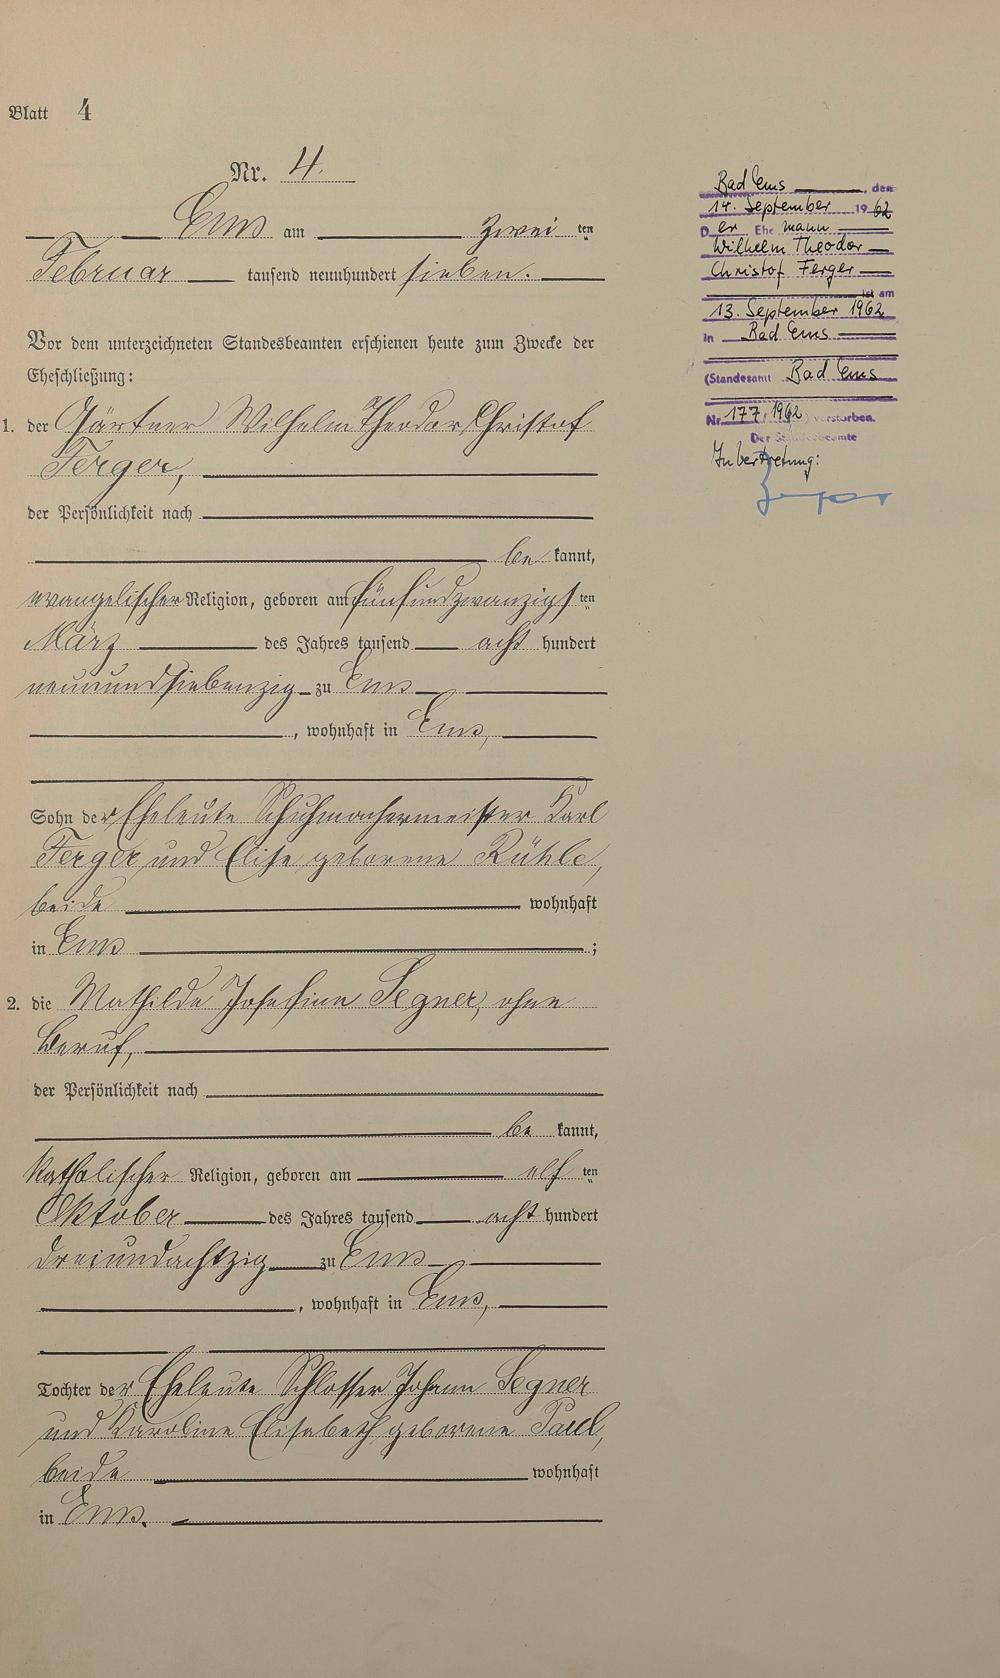 Blatt 4
Nr. 4.
Ems am Zwei ten
Februar tausend neunhundert sieben.
Vor dem unterzeichneten Standesbeamten erschienen heute zum Zwecke der
Eheschließung:
1. der Gärtner Wilhelm Theodor Christof
Ferger,
der Persönlichkeit nach
be kannt,
evangelischer Religion, geboren am fünfundzwanzigs ten
März des Jahres tausend acht hundert
neunundsiebenzig zu Ems
, wohnhaft in Ems,
Sohn der Eheleute Schuhmachermeister Karl
Ferger und Elise geborene Rühle,
beide wohnhaft
in Ems ;
2. die Mathilde Josefine Segner, ohne
Beruf,
der Persönlichkeit nach
be kannt,
katholischer Religion, geboren am elf ten
Oktober des Jahres tausend acht hundert
dreiundachtzig zu Ems
, wohnhaft in Ems,
Tochter der Eheleute Schlosser Johann Segner
und Karoline Elisabeth geborene Paul,
beide wohnhaft
in Ems.
Bad Ems , den
14. September 1962
Der Ehemann
Wilhelm Theodor
Christof Ferger
ist am
13. September 1962
in Bad Ems
(Standesamt Bad Ems
Nr. 177, 1962) verstorben.
Der Standesbeamte
In Vertretung: